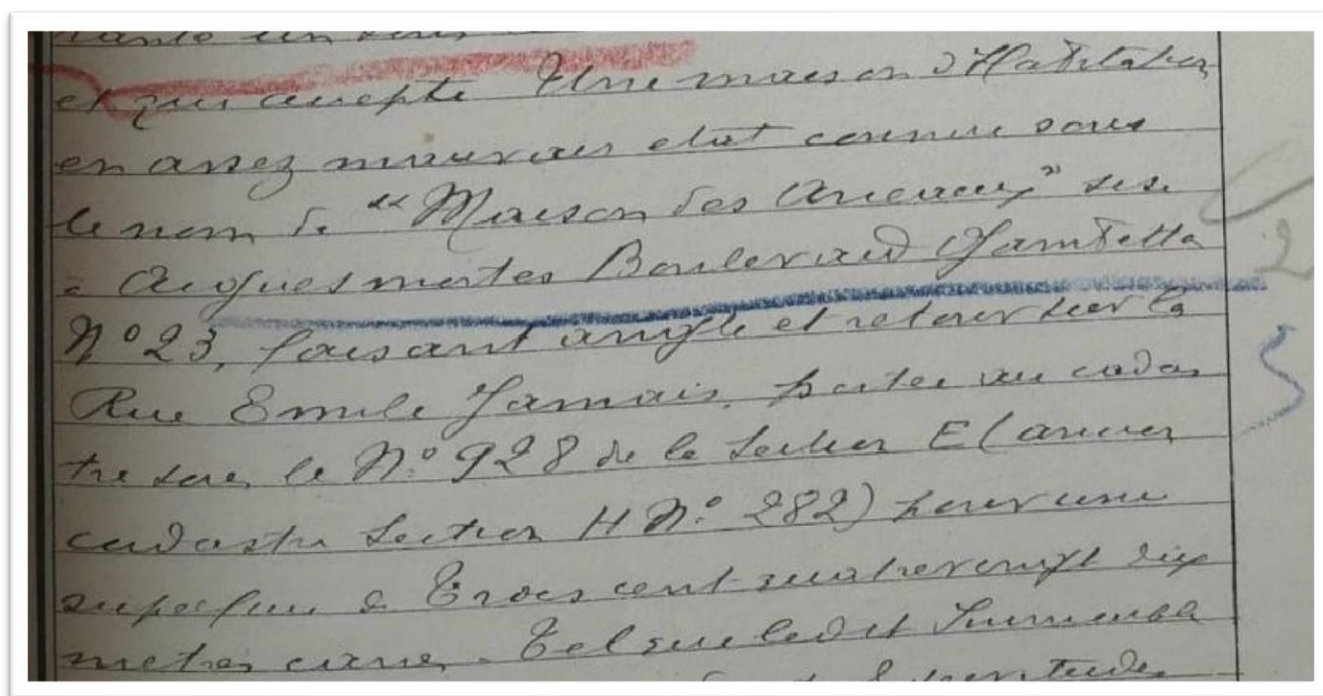 et qui accepte Une maison d'Habitation
en assez mauvais etat connue sous
le nom de "Maison des Anneaux" sise
à Aiguesmortes Boulevard Gambetta
N° 23, faisant angle et retour sur la
Rue Emile Jamais, portée au cadas
tre sous le N° 928 de la Section E (ancien
cadastre Section H N° 282) pour une
superficie de Trois cent quatrevingt dix
metres carrés. Tel que ledit Immeuble